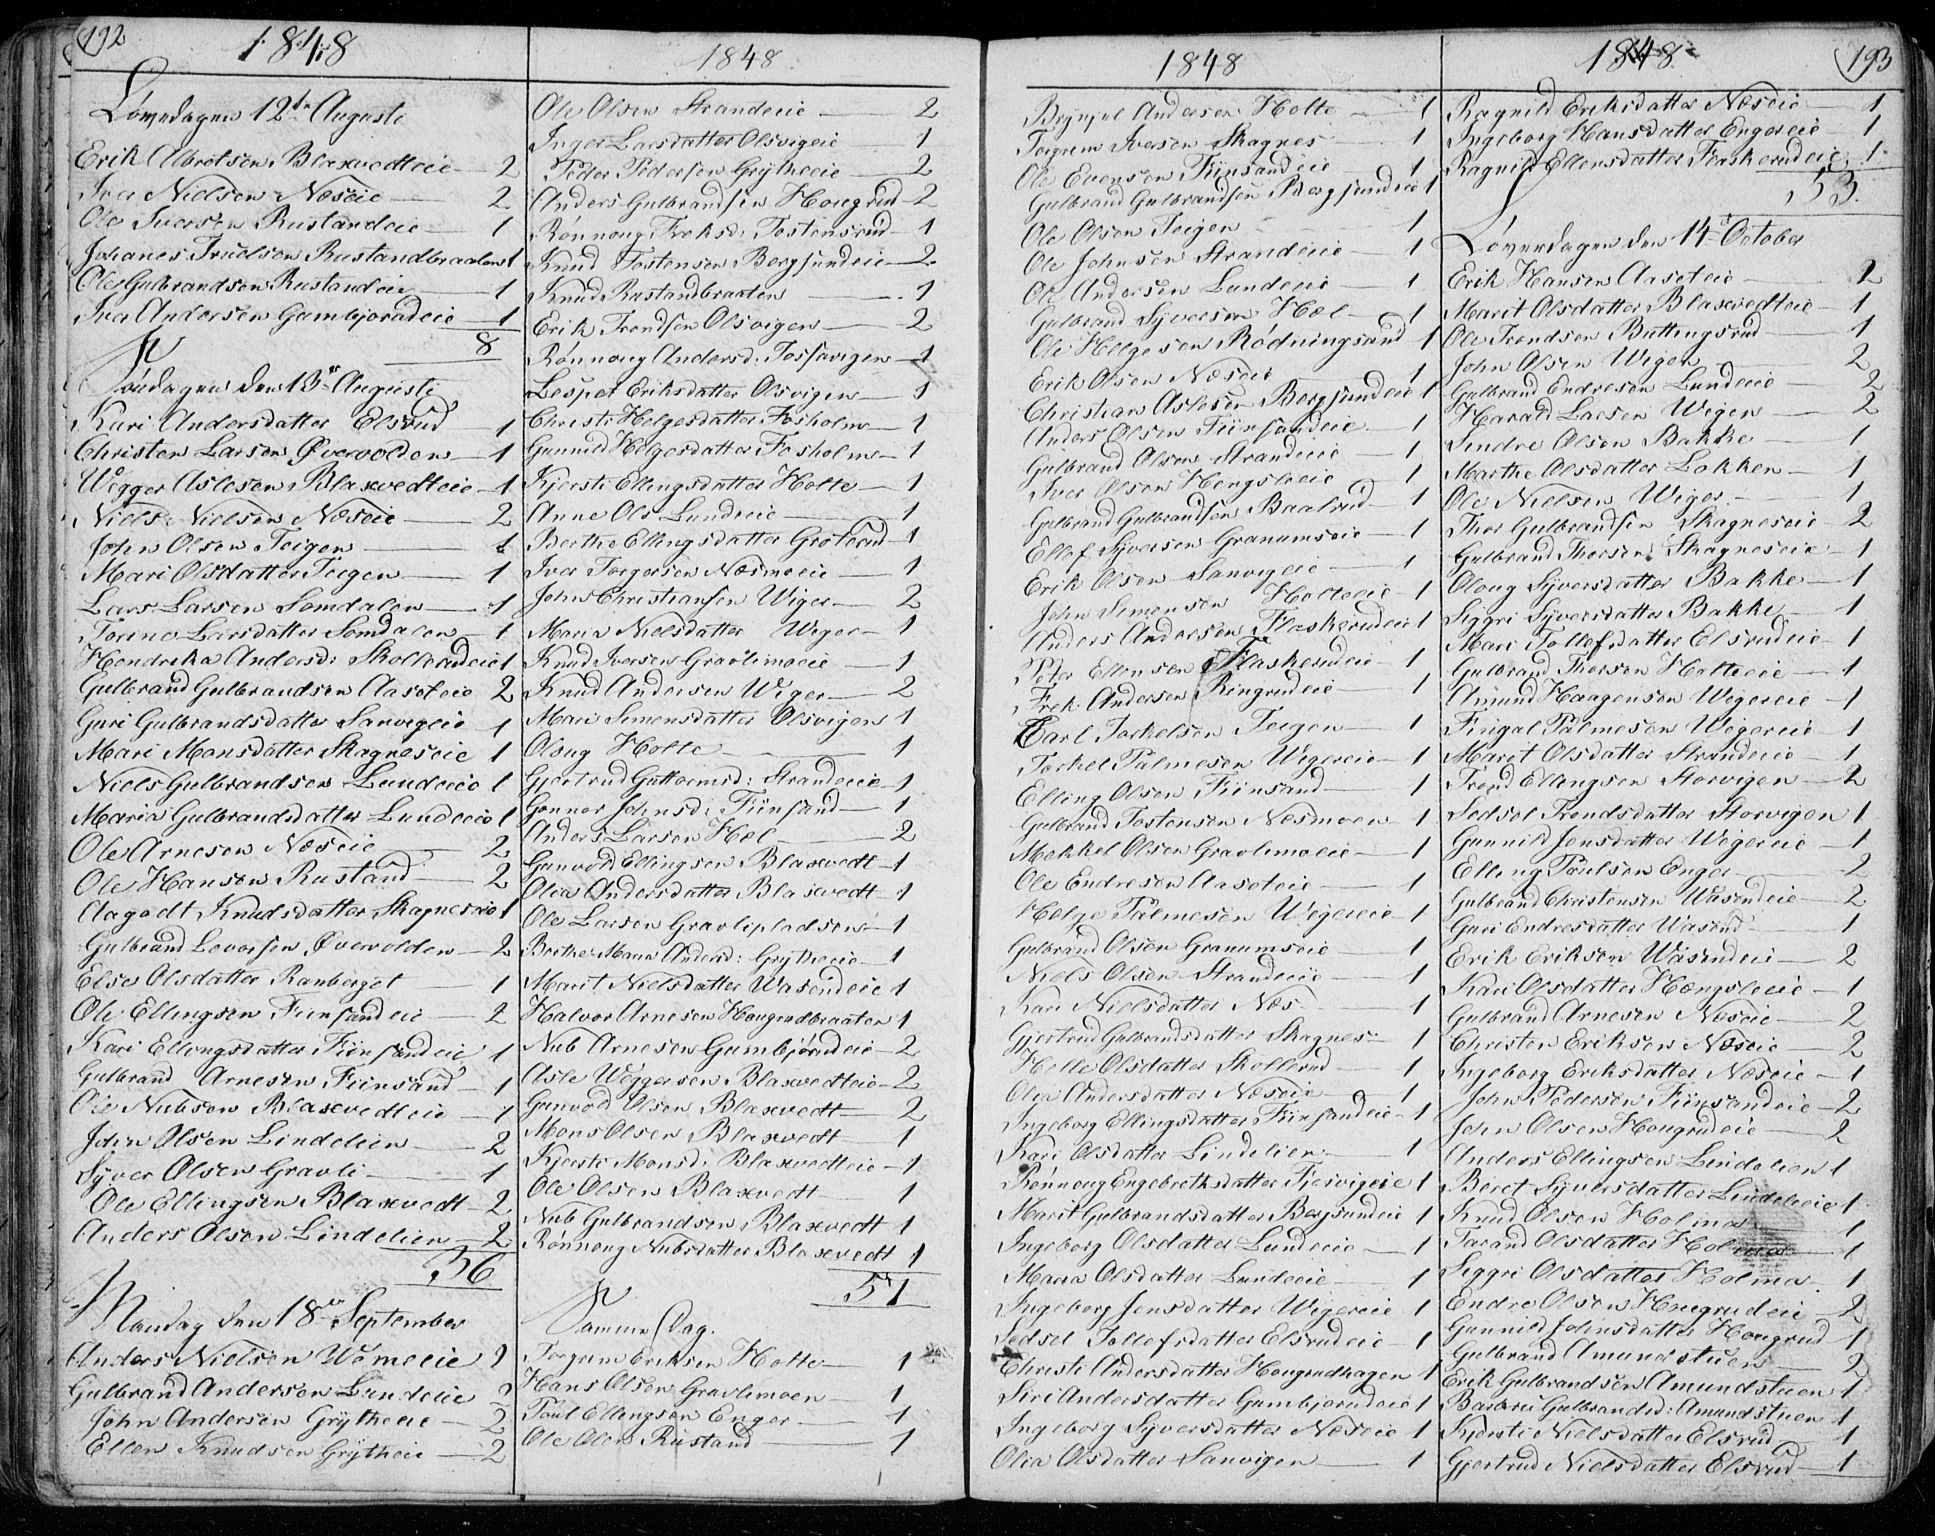 192
1848
Løverdagen 12te Augusti
Erik Albretsen Blaxvedteie 2
Iver Nielsen Næseie 2
Ole Iversen Rustandeie 1
Johanes Truelsen Rustandbraaten 1
Ole Gulbrandsen Rustandeie 1
Iver Andersen Gumbjørudeie 1
8
Søndagen den 13de Augusti
Kari Andersdatter Elsrud 1
Christen Larsen Øvervolden 1
Wegger Aslesen Blaxvedteie 1
Niels Nielsen Næseie 2
John Olsen Teigen 1
Mari Olsdatter Teigen 1
Lars Larsen Somdalen 1
Torine Larsdatter Somdalen 1
Hendrika Andersd: Skollerudeie 1
Gulbrand Gulbrandsen Aaseteie 2
Guri Gulbrandsdatter Sanvigeie 1
Mari Monsdatter Skagneseie 1
Niels Gulbrandsen Lundeeie 1
Maria Gulbrandsdatter Lundeeie 1
Ole Arnesen Næseie 2
Ole Hansen Rustand 2
Aagodt Knudsdatter Skagneseie 1
Gulbrand Levorsen Øvervolden 2
Else Olsdatter Ranberget 1
Ole Ellingsen Fiinsandeie 2
Kari Ellingsdatter Fiinsandeie 1
Gulbrand Arnesen Fiinsand 1
Ole Nubsen Blaxvedteie 1
John Olsen Lindelien 2
Syver Olsen Gravli 1
Ole Ellingsen Blaxvedt 2
Anders Olsen Lindelien 2
36
Mandag den 18de September
Anders Nielsen Wemeeie 2
Gulbrand Andersen Lundeeie 2
John Andersen Grytheeie 2
Ellen Knudsen Grytheeie 2
1848
Ole Olsen Strandeeie 2
Inger Larsdatter Olsvigeie 1
Peder Pedersen Grytheeie 2
Anders Gulbrandsen Hougrud 2
Rønnoug Freksd: Tostensrud 1
Knud Tostensen Bergsundeie 2
Knud Rustandbraaten 1
Erik Trondsen Olsvigen 2
Rønnoug Andersd: Fossavigen 1
Lespet Eriksdatter Olsvigen 1
Christi Helgesdatter Fosholm 1
Gunnild Helgesdatter Fosholm 1
Kjersti Ellingsdatter Holte 1
Anne Ols Lundeeie 1
Berthe Ellingsdatter Grotrud 1
Iver Torgersen Næsmoeie 1
John Christiansen Wiger 2
Maria Nielsdatter Wiger 1
Knud Iversen Gravlimoeie 1
Knud Andersen Wiger 2
Mari Simensdatter Olsvigen 1
Oloug Holte 1
Gjertrud Guttormsd: Strandeeie 1
Gunnor Johnsd: Fiinsand 1
Anders Larsen Hæl 2
Gunvold Ellingsen Blaxvedt 1
Olea Andersdatter Blaxvedt 1
Ole Larsen Gravlipladsen 1
Berthe Maria Andersd: Grytheeie 1
Marit Nielsdatter Wasendeie 1
Halvor Arnesen Hougrudbraaten 1
Nub Arnesen Gumbjørudeie 2
Asle Weggersen Blaxvedteie 2
Gunvold Olsen Blaxvedt 2
Mons Olsen Blaxvedt 1
Kjersti Monsd: Blaxvedteie 1
Ole Olsen Blaxvedt 1
Nub Gulbrandsen Blaxvedt 1
Rønnoug Nubsdatter Blaxvedt 1
51
Samme Dag.
Torgrim Eriksen Holte 1
Hans Olsen Gravlimoen 1
Poul Ellingsen Enger 1
Ole Olsen Rustand 1
1848
Brynjul Andersen Holte 1
Torgrim Iversen Skagnes 1
Ole Evensen Fiinsandeie 1
Gulbrand Gulbrandsen Bergsundeie 1
Ole Olsen Teigen 1
Ole Johnsen Strandeeie 1
Ole Andersen Lundeeie 1
Gulbrand Syversen Hæl 1
Ole Helgesen Rødningsand 1
Erik Olsen Næseie 1
Christian Aslesen Bergsundeie 1
Anders Olsen Fiinsandeie 1
Gulbrand Olsen Strandeeie 1
Iver Olsen Hengsleeie 1
Gulbrand Gulbrandsen Baalrud 1
Ellef Syversen Granumseie 1
Erik Olsen Sanvigeie 1
John Simensen Holteeie 1
Anders Andersen Flaskerudeie 1
Peter Ellensen Flaskerudeie 1
Frek Andersen Ringrudeie 1
Carl Torkelsen Teigen 1
Torkel Palmesen Wigereie 1
Elling Olsen Fiinsand 1
Gulbrand Tostensen Næsmoen 1
Mekkel Olsen Gravlimoeie 1
Ole Endresen Aaseteie 1
Helge Palmesen Wigereie 1
Gulbrand Olsen Granumseie 1
Niels Olsen Strandeeie 1
Kari Nielsdatter Næs 1
Gjertrud Gulbrandsdatter Skagnes 1
Helle Olsdatter Skollerud 1
Olea Andersdatter Næseie 1
Ingeborg Ellingsdatter Fiinsandeie 1
Kari Olsdatter Lindelien 1
Rønnoug Engebrethsdatter Fjærvigeie 1
Marit Gulbrandsdatter Bergsundeie 1
Ingeborg Olsdatter Lundeeie 1
Maria Olsdatter Lundeeie 1
Ingeborg Jensdatter Wigereie 1
Sedsel Tollefsdatter Elsrudeie 1
Christi Andersdatter Hougrudhagen 1
Siri Andersdatter Gumbjørudeie 1
Ingeborg Syversdatter Næseie 1
Olea Olsdatter Sanvigen 1
1848
193
Ragnild Eriksdatter Næseie 1
Ingeborg Hansdatter Engereie 1
Ragnild Ellensdatter Flaskerudeie 1
53
Løverdagen den 14de October
Erik Hansen Aaseteie 2
Marit Olsdatter Blaxvedteie 1
Ole Trondsen Buttingsrud 1
John Olsen Wigen 2
Gulbrand Endresen Lundeeie 2
Harald Larsen Wigen 2
Sindre Olsen Bakke 1
Marthe Olsdatter Løkken 1
Ole Nielsen Wiger 1
Thor Gulbrandsen Skagneseie 2
Gulbrand Thorsen Skagneseie 1
Oloug Syversdatter Bakke 1
Siggri Syversdatter Bakke 1
Mari Tollefsdatter Elsrudeie 1
Gulbrand Thorsen Holteeie 1
Amund Haagensen Wigereie 1
Fingal Palmesen Wigereie 1
Marit Olsdatter Strandeeie 1
Trond Ellingsen Storvigen 2
Sedsel Trondsdatter Storvigen 1
Gunnild Jensdatter Wigereie 1
Elling Poulsen Enger 2
Gulbrand Christensen Wasendeie 2
Guri Endresdatter Wasend 1
Erik Eriksen Wasendeie 2
Kari Olsdatter Hængsleeie 1
Gulbrand Arnesen Næseie 2
Christen Eriksen Næseie 2
Ingeborg Eriksdatter Næseie 1
John Pedersen Fiinsandeie 2
John Olsen Hougrudeie 2
Anders Ellingsen Lindelien 1
Beret Syversdatter Lindelieeie 1
Knud Olsen Holma 1
Tarand Olsdatter Holma 1
Siggri Olsdatter Holma 1
Endre Olsen Hougrudeie 2
Gunnild Johnsdatter Hougrud 1
Gulbrand Amundstuen 2
Erik Gulbrandsen Amundstuen 1
Barbru Gulbrandsd: Amundstuen 1
Kjersti Nielsdatter Elsrud 1
Gjertrud Nielsdatter Elsrud 1